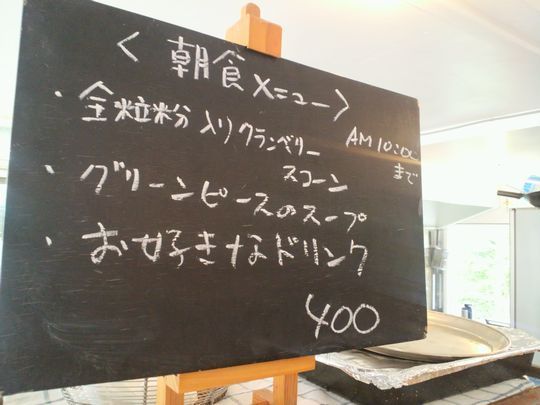 〈朝食メニュー〉
・全粒粉入りクランベリー
スコーン
AM10:00
まで
・グリーンピースのスープ
・お好きなドリンク
400